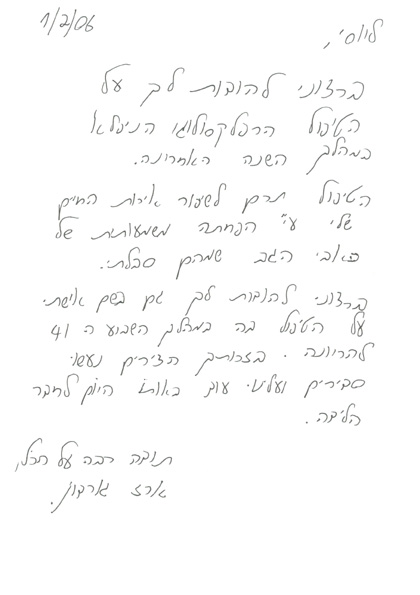 1/2/06
ליוסי,
ברצוני להודות לך על
הטיפול הרפלקסולוגי הנפלא
במהלך השנה האחרונה.
הטיפול תרם לשיפור איכות החיים
שלי ע"י הפחתה משמעותית של
כאבי הגב שמהם סבלתי.
ברצוני להודות לך גם בשם אישתי
על הטיפול בה במהלך השבוע ה 41
להריונה. בזכותך הצירים נעשו
סדירים ועלינו עוד באותו היום לחדר
הלידה.
תודה רבה על הכל,
ארז